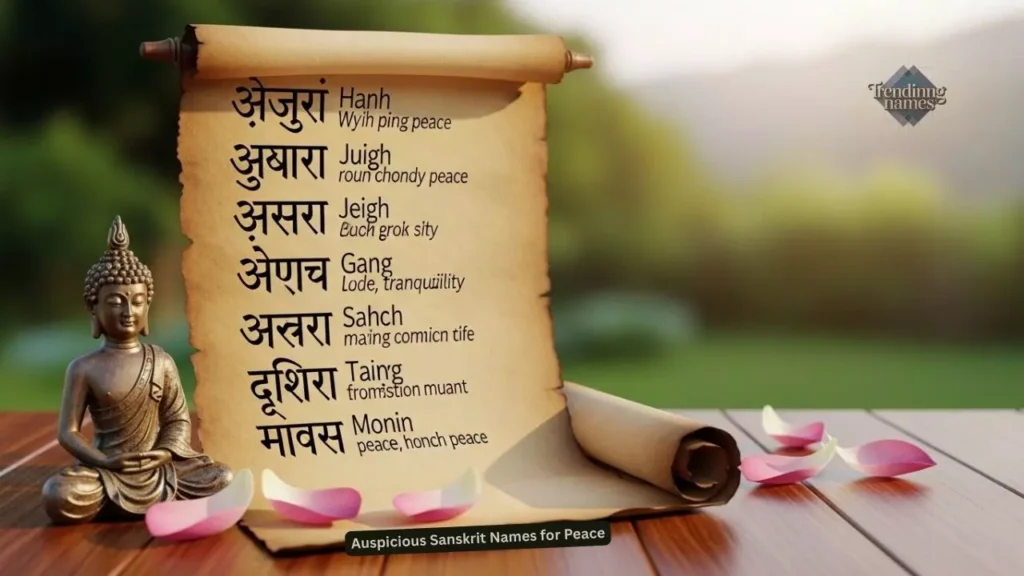 Trendinng
names
अ़ेजुरां Hanh
Wyih ping peace
अु़षारा Juigh
roun chondy peace
अ़सरा Jeigh
Buch grok sity
अेणच Gang
Lode, tranquiility
अत्नरा Sahch
maing comicn tife
दृशिरा Tairrg
fromistion muant
मावस Monin
peace, honch peace
Auspicious Sanskrit Names for Peace